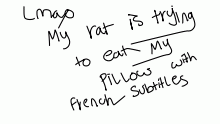 Lmao
My rat is trying
to eat My
pillows with
french subtitles